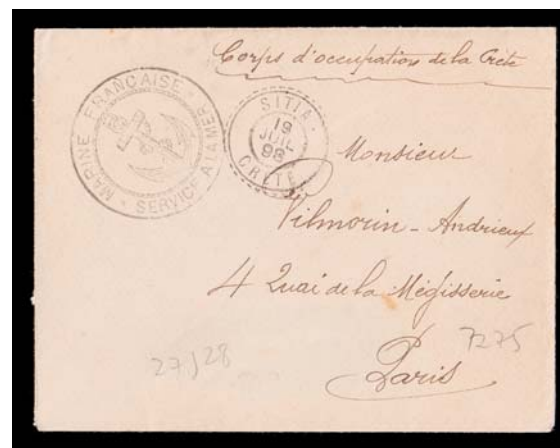 Corps d'occupation de la Crète
MARINE FRANÇAISE · SERVICE A LA MER ·
SITIA
19
JUIL
98
CRETE
Monsieur
Vilmorin - Andrieux
4 Quai de la Mégisserie
Paris
7275
27/28